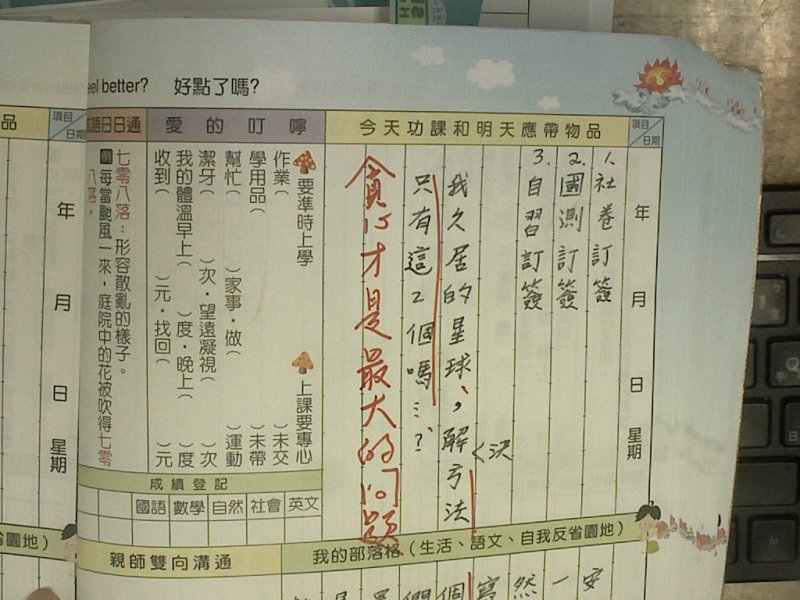 eel better? 好點了嗎?
項目
日期
今天功課和明天應帶物品
愛的叮嚀
日日通
項目
日期
品
年 月 日 星期
1. 社卷訂簽
2. 國測訂簽
3. 自習訂簽
く決
我久居的星球,解方法
只有這2個嗎…?
貪心才是最大的問題
要準時上學
上課要專心
作業( )未交
學用品( )未帶
幫忙( )家事·做( )運動
潔牙( )次·望遠凝視( )次
我的體溫早上( )度·晚上( )度
收到( )元·找回( )元
七零八落:形容散亂的樣子。
例每當颱風一來,庭院中的花被吹得七零
八落。
年 月 日 星期
成績登記
國語 數學 自然 社會 英文
我的部落格(生活、語文、自我反省園地)
親師雙向溝通
園地)
安
一
然
寫
個
們